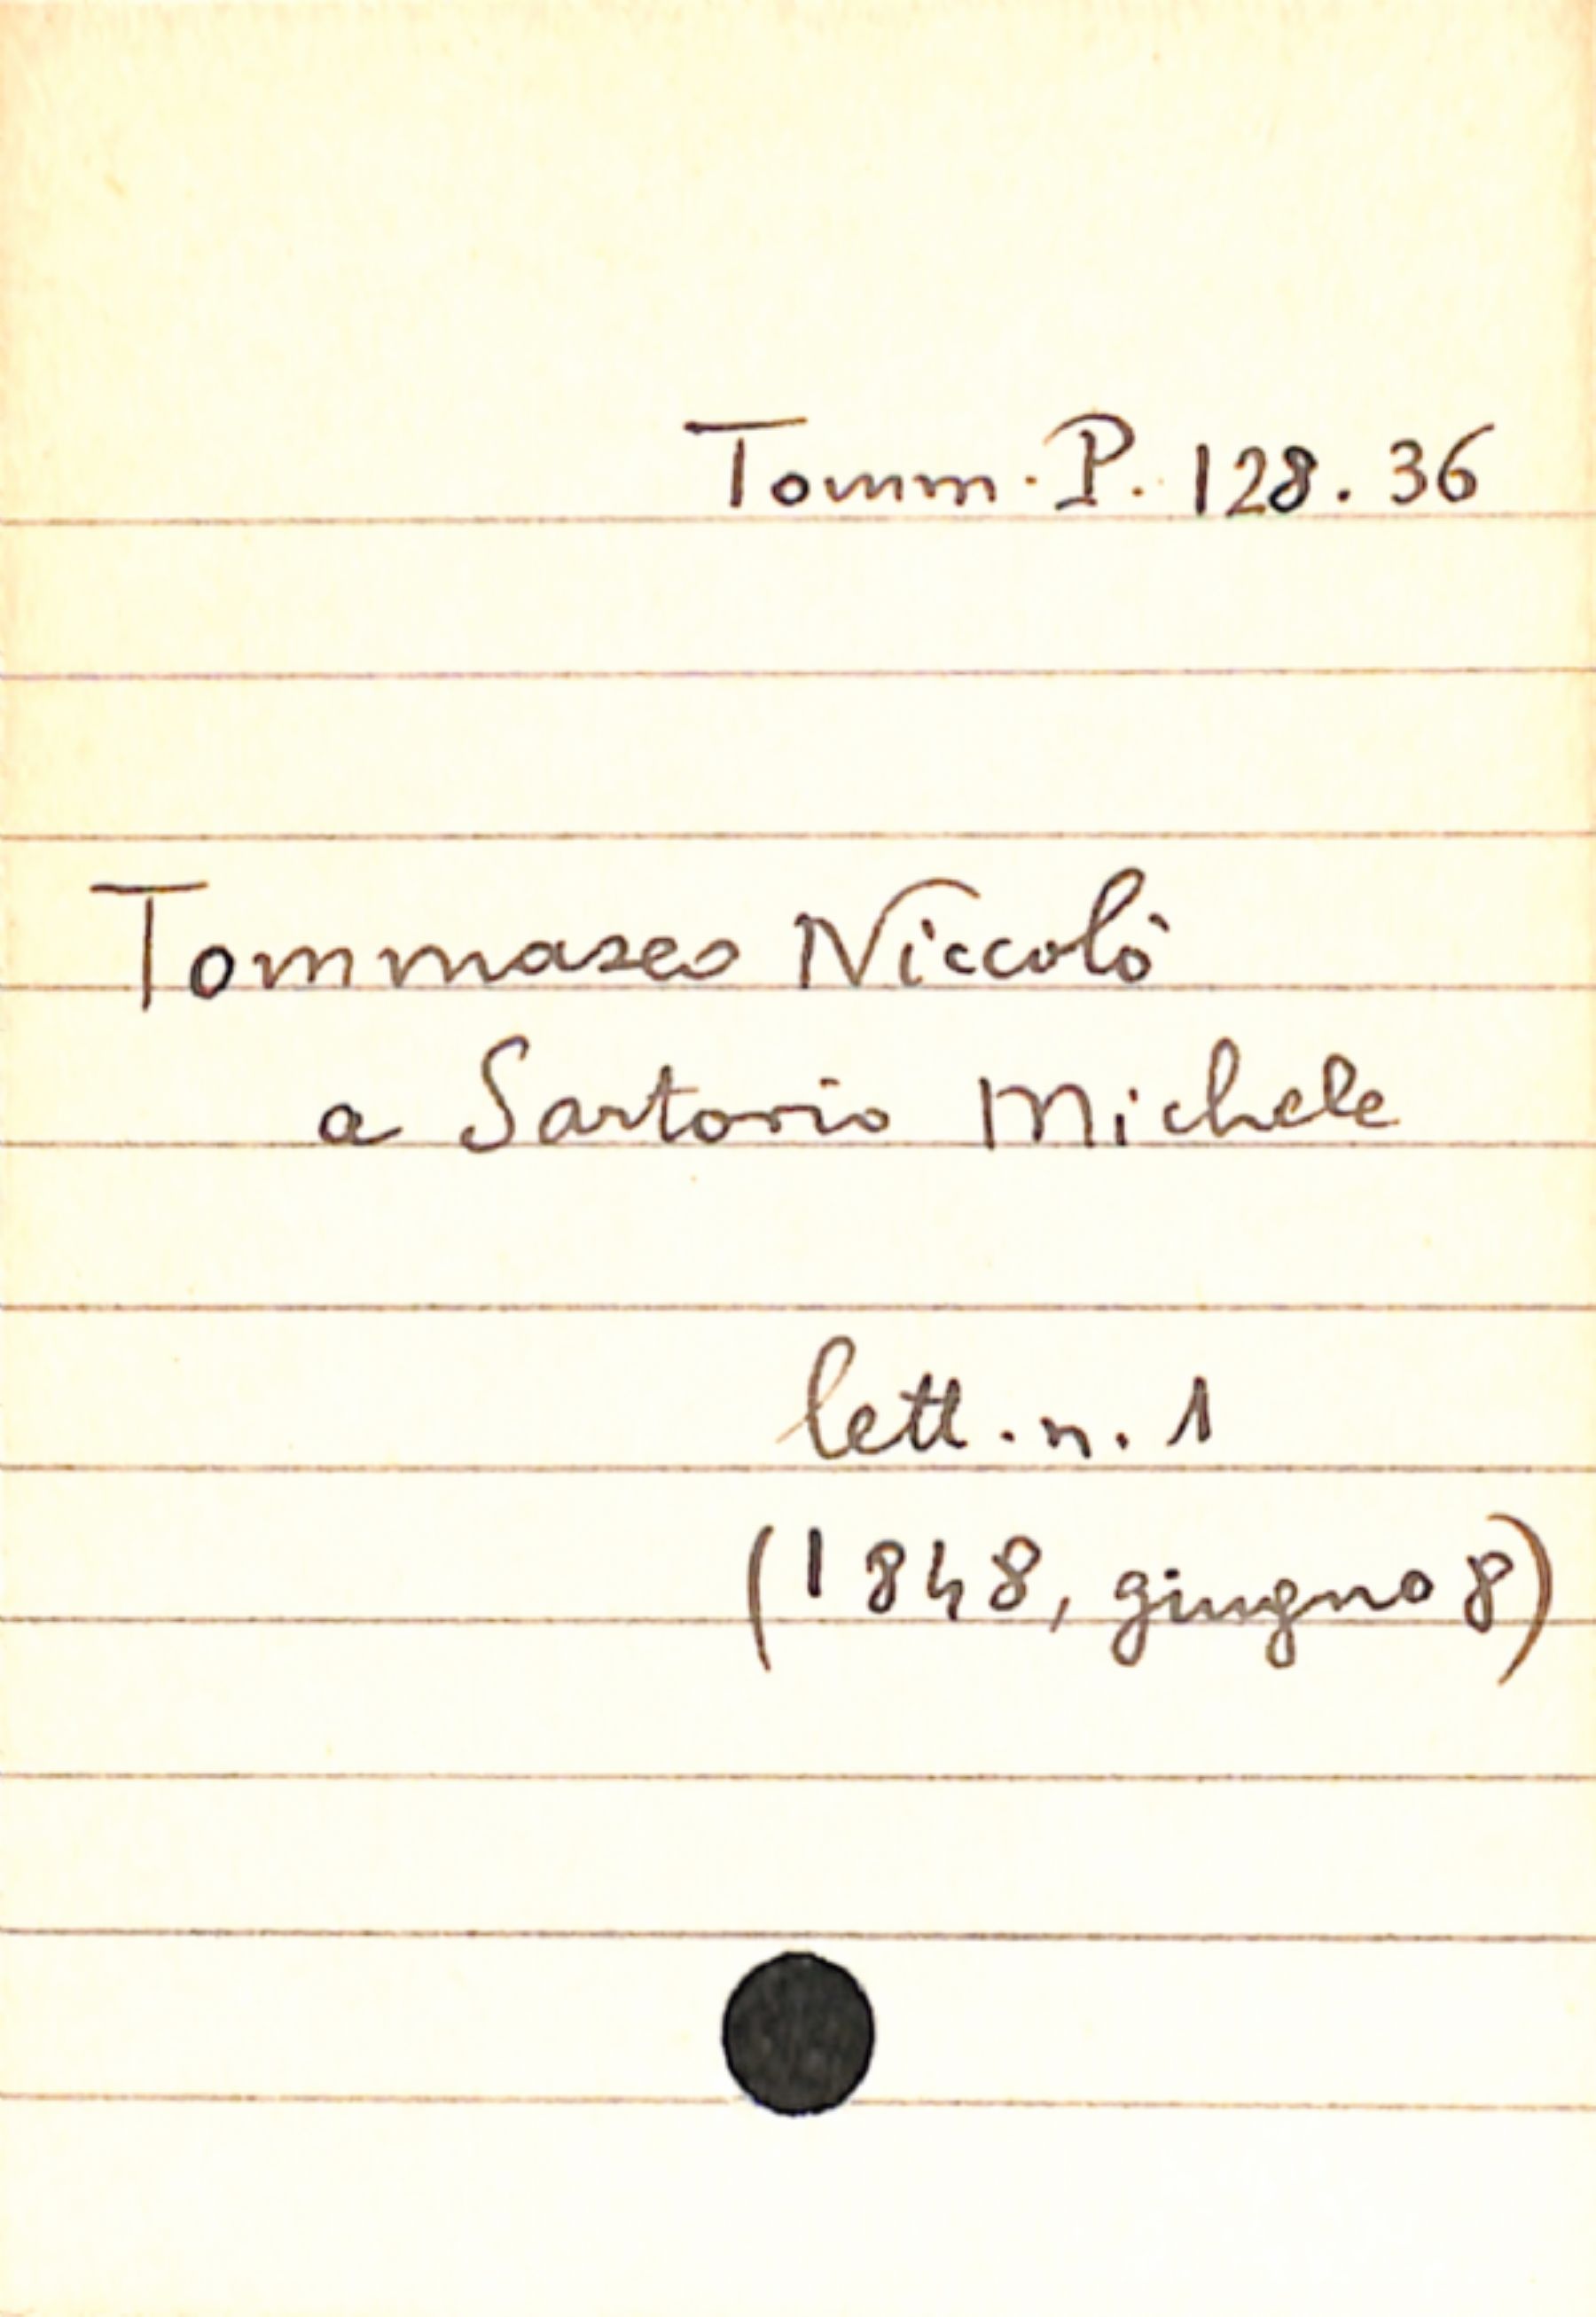 Tomm. P. 128. 36
Tommaseo Niccolò
a Sartorio Michele
lett. n. 1
(1848, giugno 8)